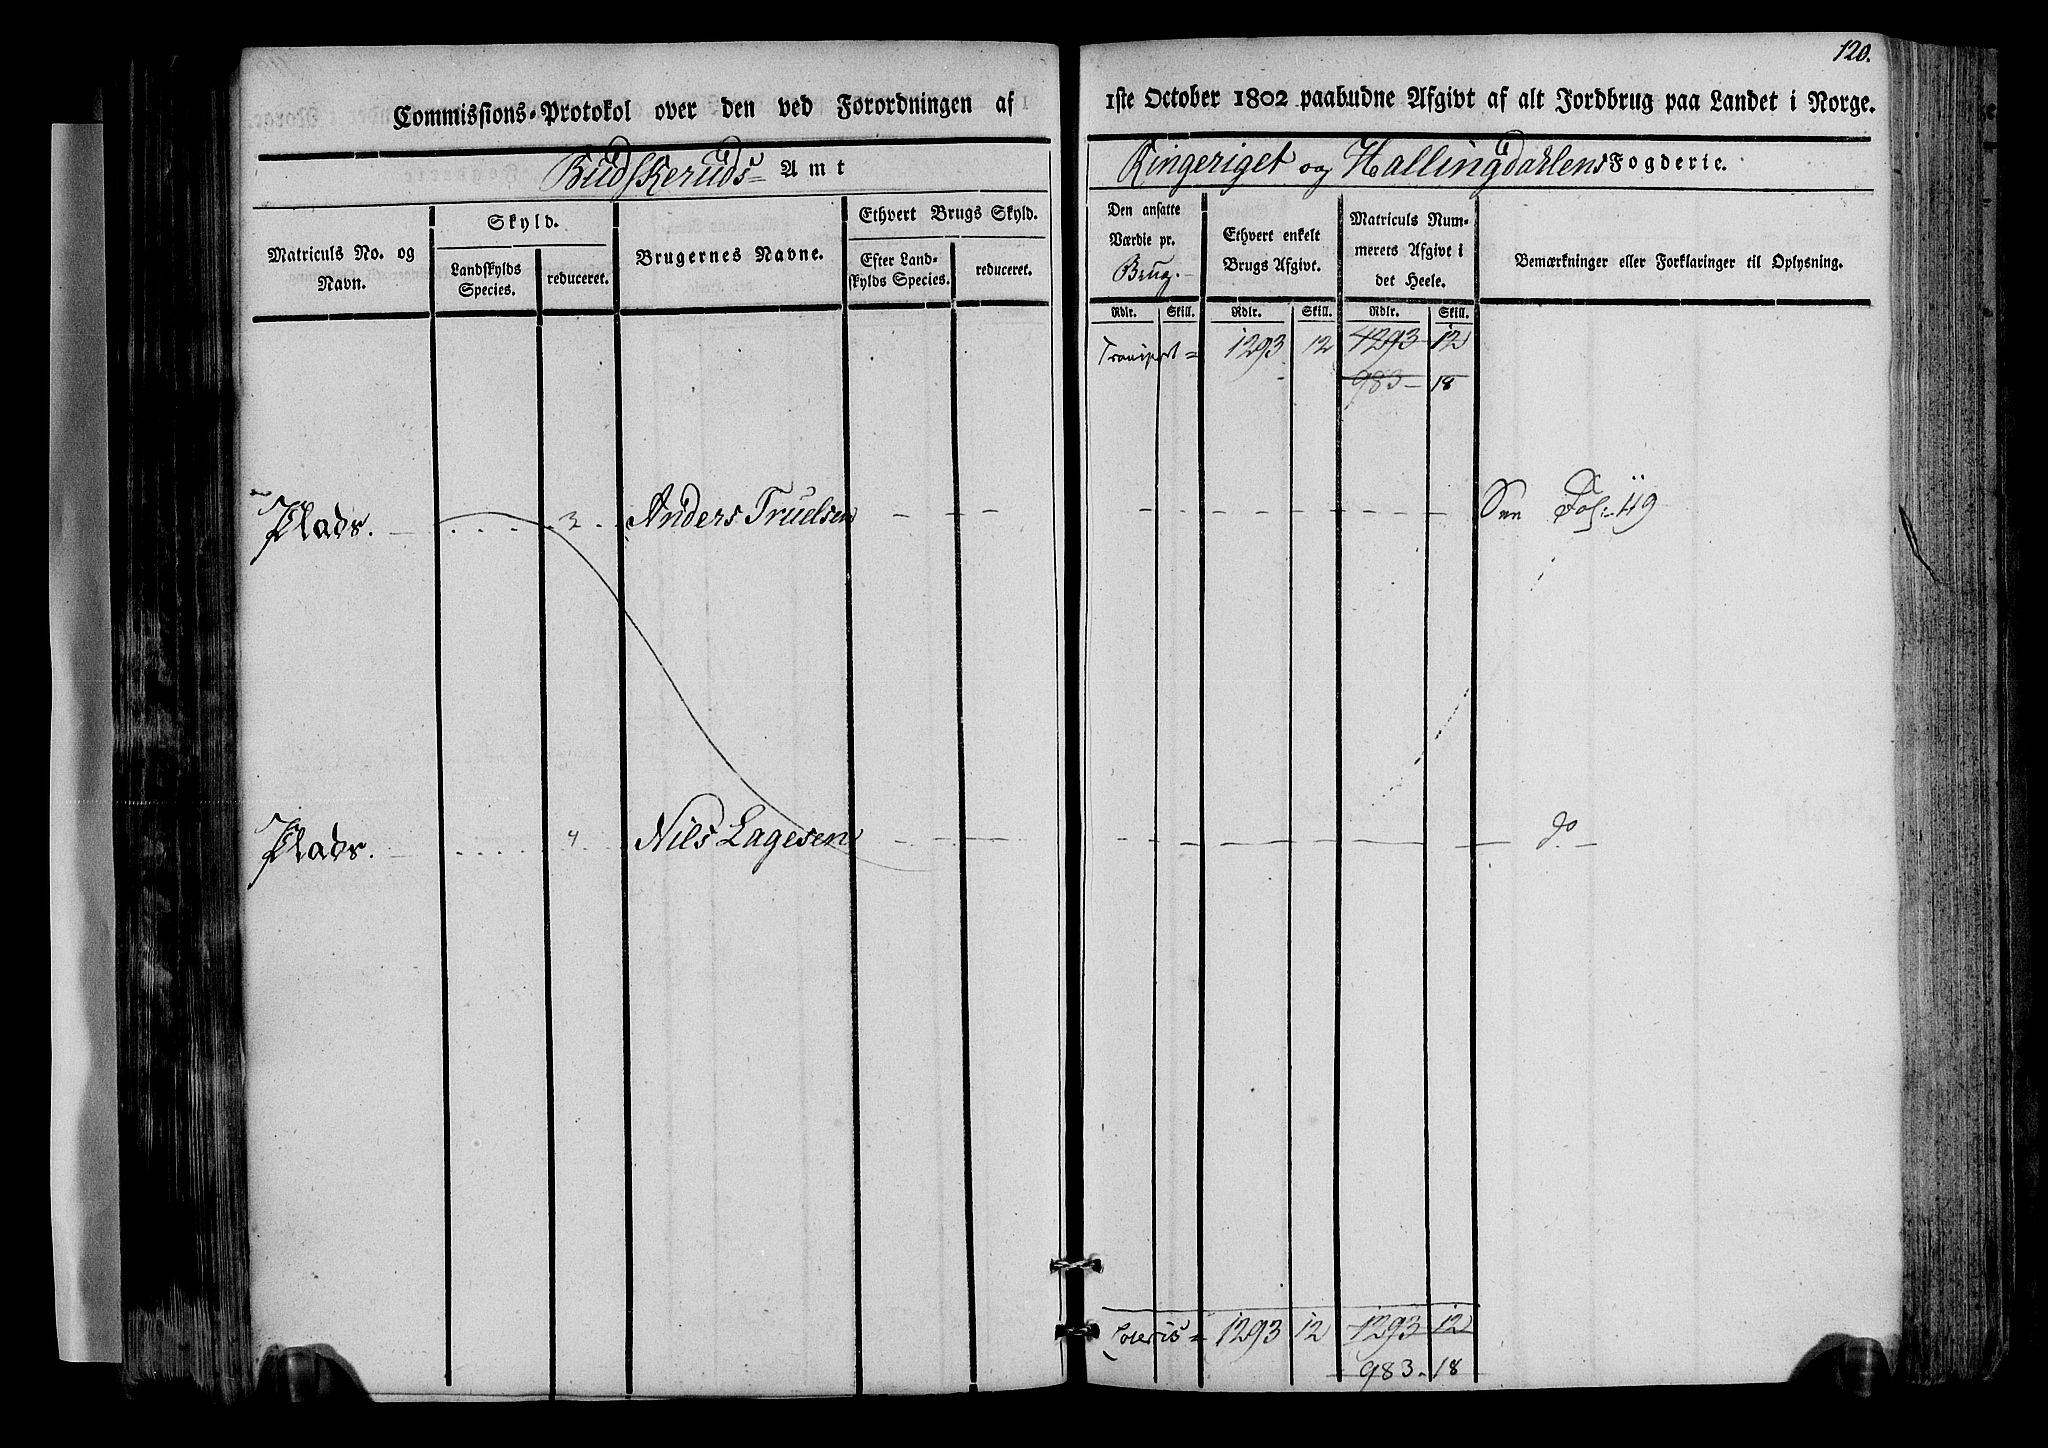 120.
Commissions-Protokol over den ved Forordningen af 1ste October 1802 paabudne Afgivt af alt Jordbrug paa Landet i Norge.
Budskeruds Amt
Ringeriget og Hallingdahlens Fogderie.
Matriculs No. og Navn.
Skyld.
Landskylds Species.
reduceret.
Brugernes Navne.
Ethvert Brugs Skyld.
Efter Landskylds Species.
reduceret.
Den ansatte Værdie pr. Brug.
Ethvert enkelt Brugs Afgivt.
Matriculs Nummerets Afgivt i det Heele.
Bemærkninger eller Forklaringer til Oplysning.
Rdlr. Skill. Rdlr. Skill. Rdlr. Skill.
Transport = 1293 12 1293 12
983 - 18
Plads. 3 Anders Truelsen - - See Fol: 119
Plads. 4 Nils Lagesen - - do -
Lateris = 1293 12 1293 12
983. 18